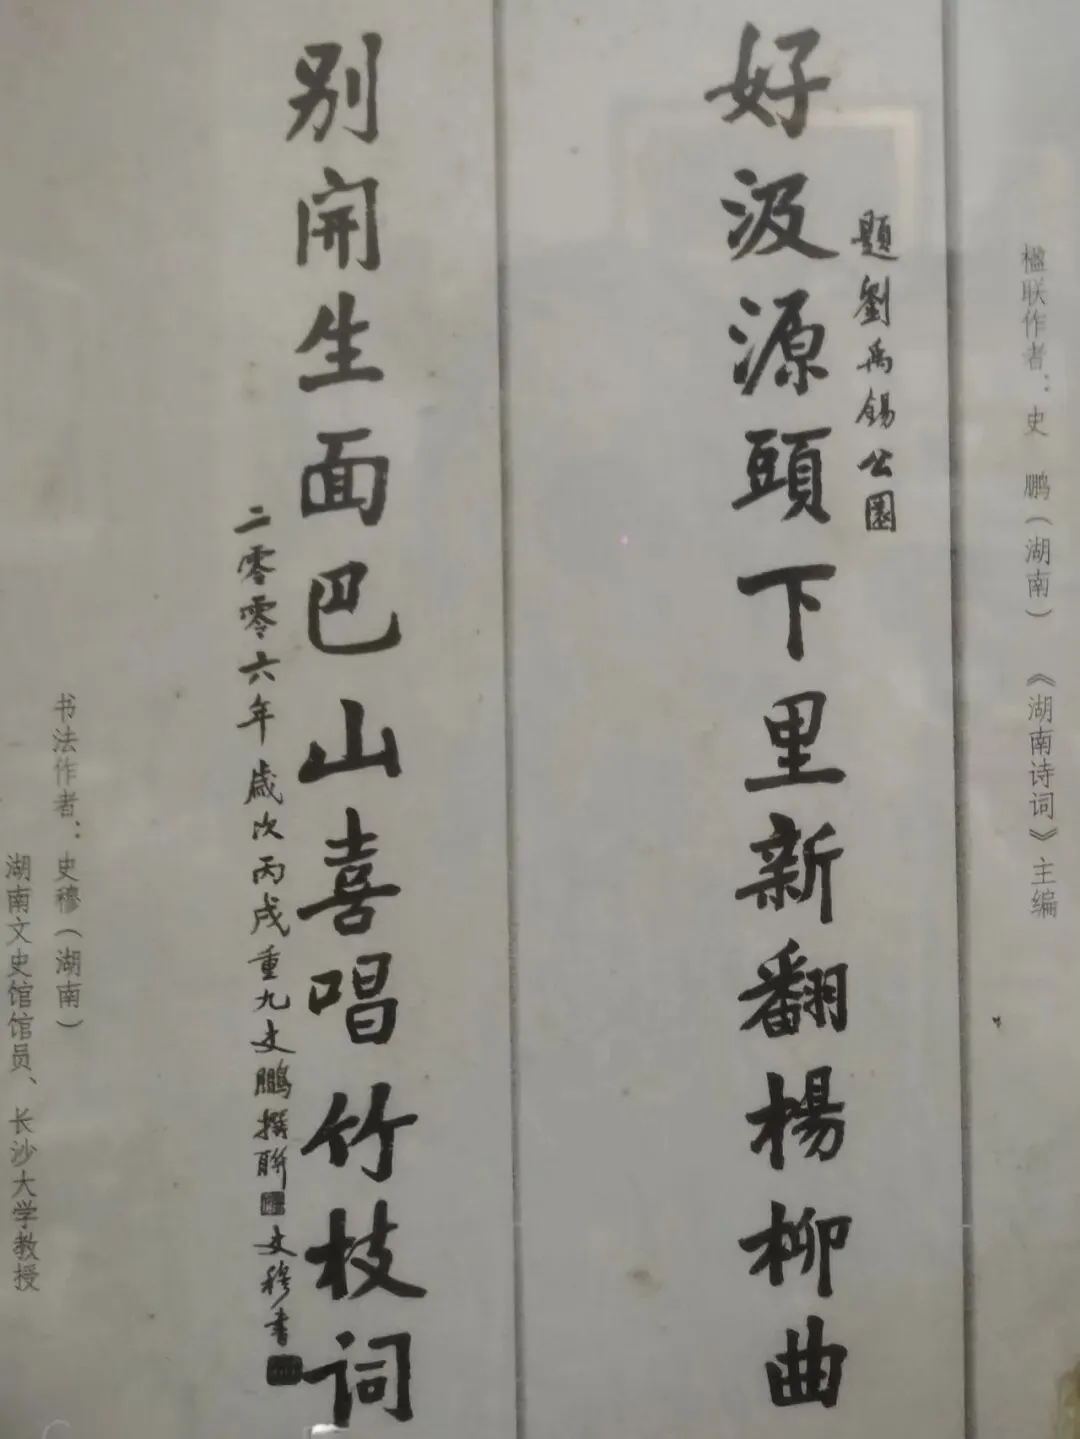 楹联作者：史　鹏（湖南）　《湖南诗词》主编
题劉禹錫公園
好汲源頭下里新翻楊柳曲
别開生面巴山喜唱竹枝词
二零零六年歲次丙戌重九史鵬撰聯
史穆書
书法作者：史穆（湖南）
湖南文史馆馆员、长沙大学教授